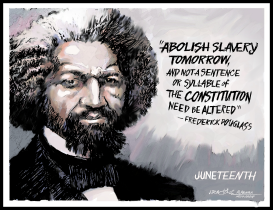 "ABOLISH SLAVERY
TOMORROW,
AND NOT A SENTENCE
OR SYLLABLE OF
THE CONSTITUTION
NEED BE ALTERED"
— FREDERICK DOUGLASS
JUNETEENTH